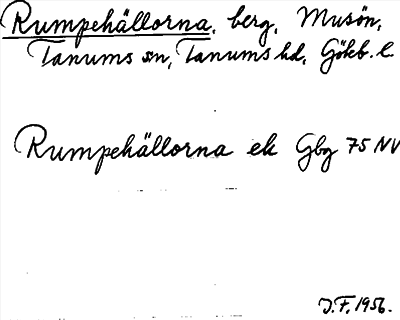 Rumpehällorna, berg, Musön,
Tanums sn, Tanums hd, Göteb. l.
Rumpehällorna ek Gbg 75 NV
J.F. 1956.